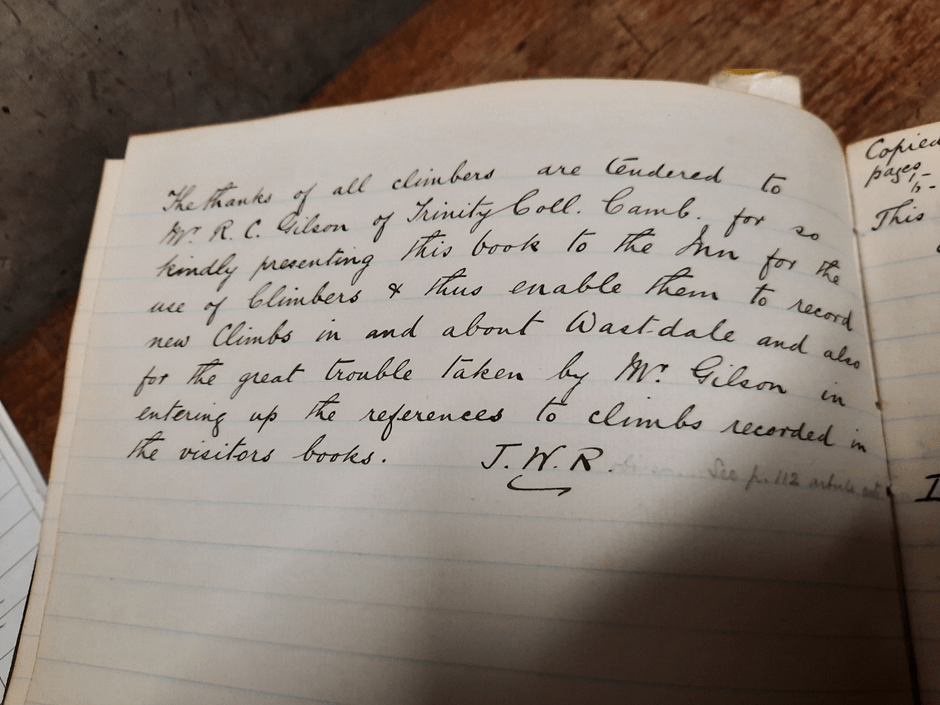 The thanks of all climbers are tendered to
Mr. R. C. Gilson of Trinity Coll. Camb. for so
kindly presenting this book to the Inn for the
use of Climbers & thus enable them to record
new Climbs in and about Wastdale and also
for the great trouble taken by Mr. Gilson in
entering up the references to climbs recorded in
the visitors books. J. W. R.
See p. 112
Copied
pages
This